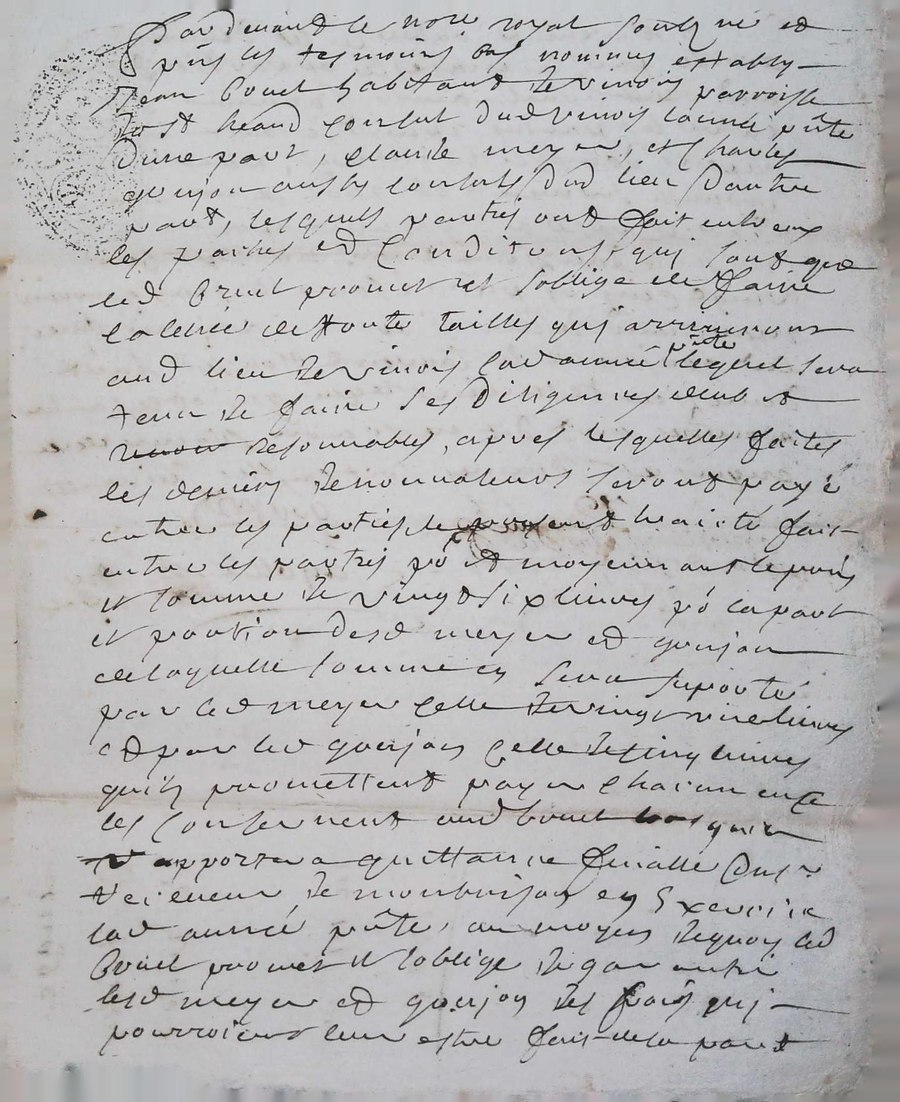 Pardevant le nore royal soubz né et
pnts les tesmoins bas nommes estably
Jean Bruel habitant de vinois parroisse
de st heand consul dud vinois lannée pnte
dune part, claude meyer, et Charles
goujon aussy consuls dud lieu dautre
part, lesquels parties ont fait entre eux
les pactes et Conditions qui sont que
led Bruel promet et soblige de faire
la levée de toute tailles qui arriveront
aud lieu de vinois lad année pnte lequel sera
tenu de faire ses diligences deub et
resonnables, apres lesquelles faites
les deniers seront payé
entre les parties le present traicté fait
entre les parties po et moyennant le prix
et somme de vingt six livres po la part
et portion desd meyer et goujon
de laquelle somme en sera suporté
par led meyer celle de vingt une livres
et par led goujon celle de cinq livres
quils promettent payer chacun en ce
les Consernent aud bruel
apportera quittance finalle du sr
receveur de montbrison en Exercice
lad année pnte, au moyen dequoy led
Bruel promet et soblige de garantir
lesd meyer et goujon des frais qui
pourroient leur estre fait de la part